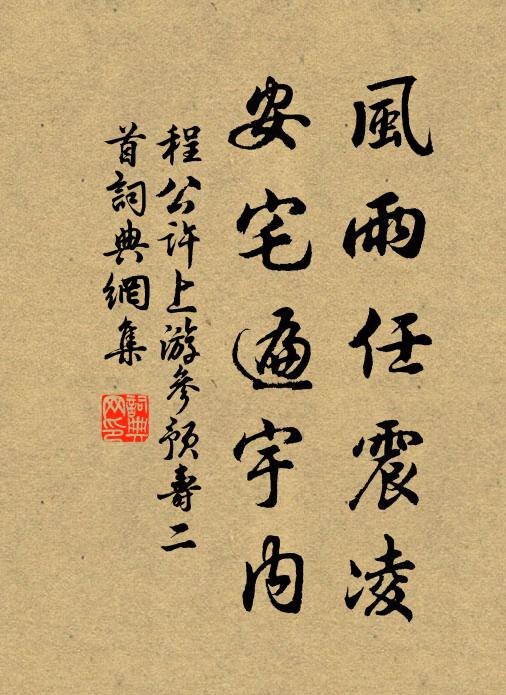 風雨任震凌
安宅遍宇内
程公許上游參預壽二
首詞典網集
詞典
网印